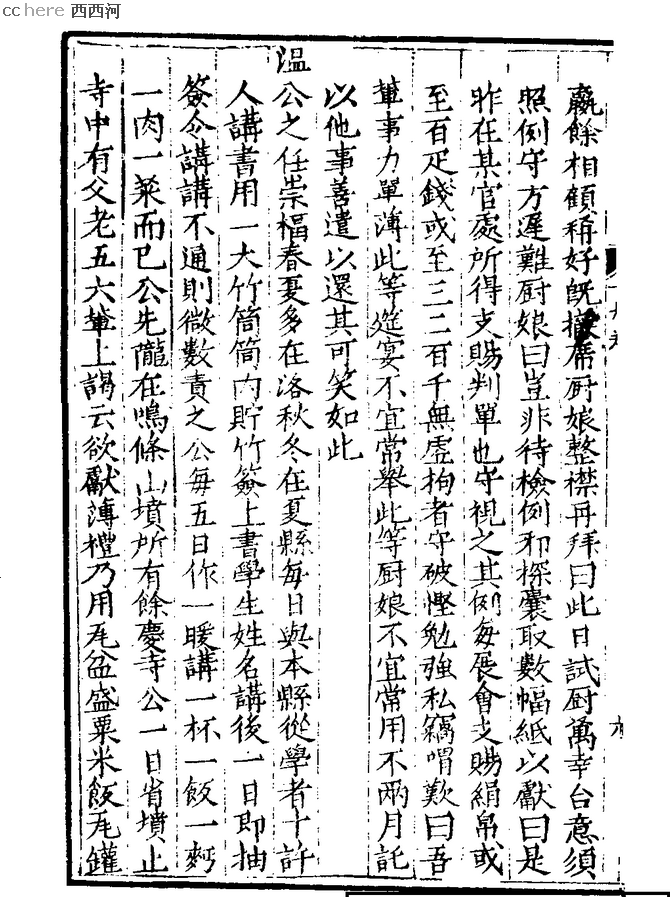 cchere 西西河
羸餘相顧稱好旣撤席厨娘整襟再拜曰此日試厨萬幸台意須
照例守方遲難厨娘曰豈非待檢例邪探囊取數幅紙以獻曰是
昨在某官處所得支賜判單也守視之其例每展會支賜絹帛或
至百疋錢或至三二百千無虛拘者守破慳勉強私竊喟歎曰吾
軰事力單薄此等筵宴不宜常舉此等厨娘不宜常用不兩月託
以他事善遣以還其可笑如此
温公之任崇福春夏多在洛秋冬在夏縣每日與本縣從學者十許
人講書用一大竹筒筒內貯竹簽上書學生姓名講後一日即抽
簽令講講不通則微數責之公每五日作一暖講一杯一飯一麪
一肉一菜而已公先隴在鳴條山墳所有餘慶寺公一日省墳止
寺中有父老五六軰上謁云欲獻薄禮乃用瓦盆盛粟米飯瓦罐